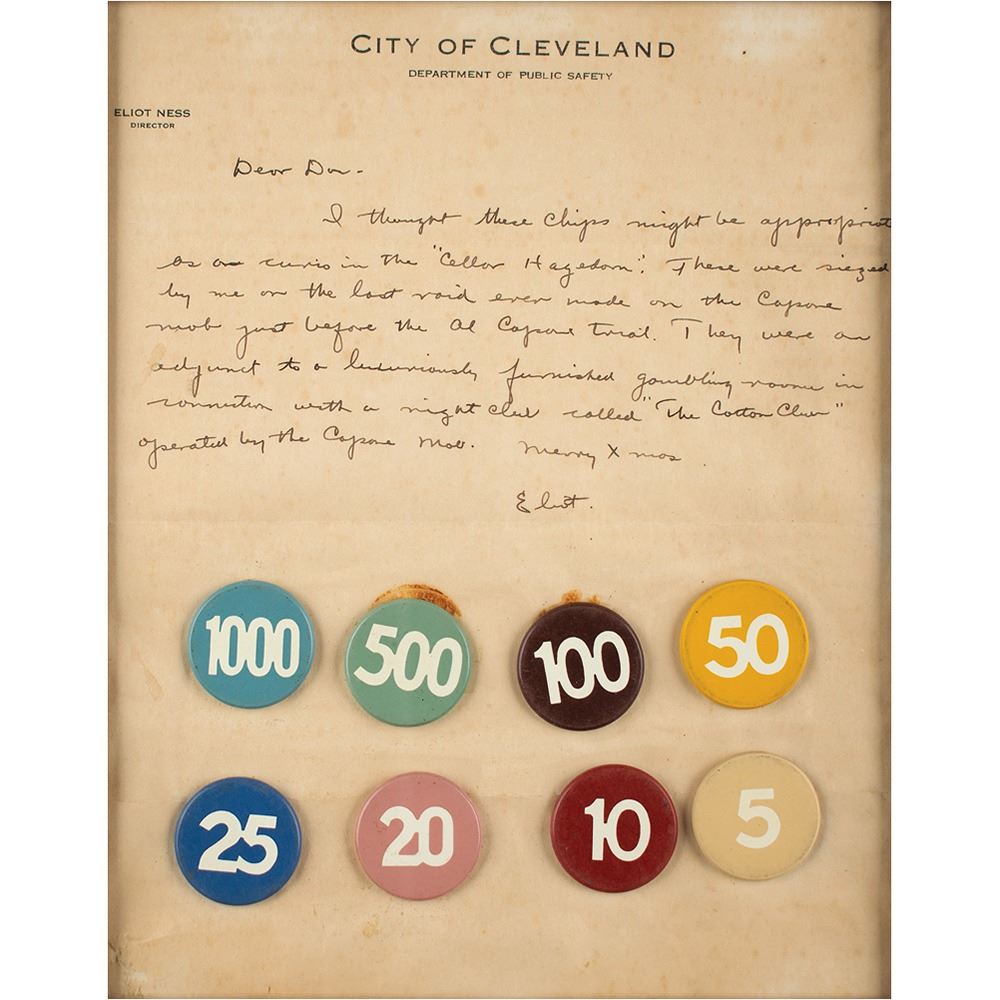 CITY OF CLEVELAND
DEPARTMENT OF PUBLIC SAFETY
ELIOT NESS
DIRECTOR
Dear Don -
I thought these chips might be appropriat
as a curio in the "Cellar Hagedorn". These were siezed
by me on the last raid ever made on the Capone
mob just before the Al Capone trial. They were an
adjunct to a luxuriously furnished gambling room in
connection with a night club called "The Cotton Club"
operated by the Capone Mob. Merry Xmas.
Eliot.
1000 500 100 50
25 20 10 5